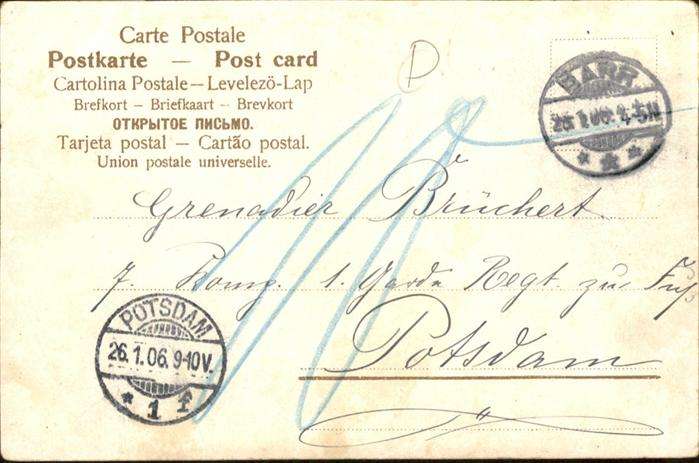 Carte Postale
Postkarte — Post card
Cartolina Postale — Levelező-Lap
Brefkort — Briefkaart — Brevkort
ОТКРЫТОЕ ПИСЬМО.
Tarjeta postal — Cartão postal.
Union postale universelle.
D
BARR
26.1.06
Grenadier Brüchert
7. Komp. 1. Garde Regt. zu Fuß
Potsdam
POTSDAM
26.1.06.9-10V.
* 1 f